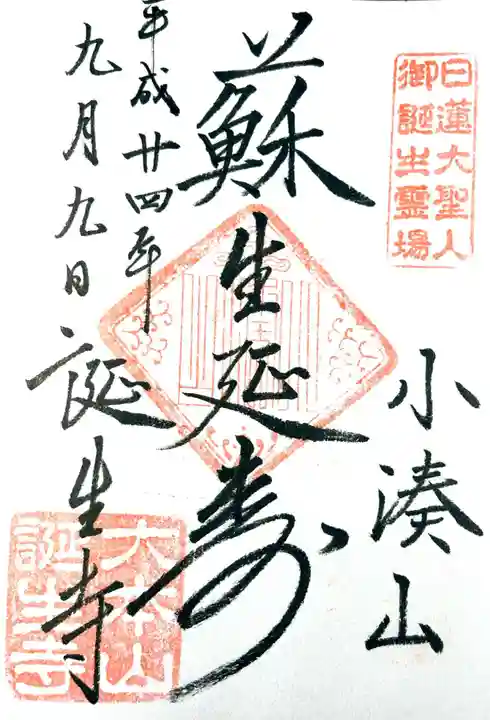 日蓮大聖人
御誕生霊場
小湊山
蘇生延寿
平成廿四年
九月九日
誕生寺
大本山
誕生寺